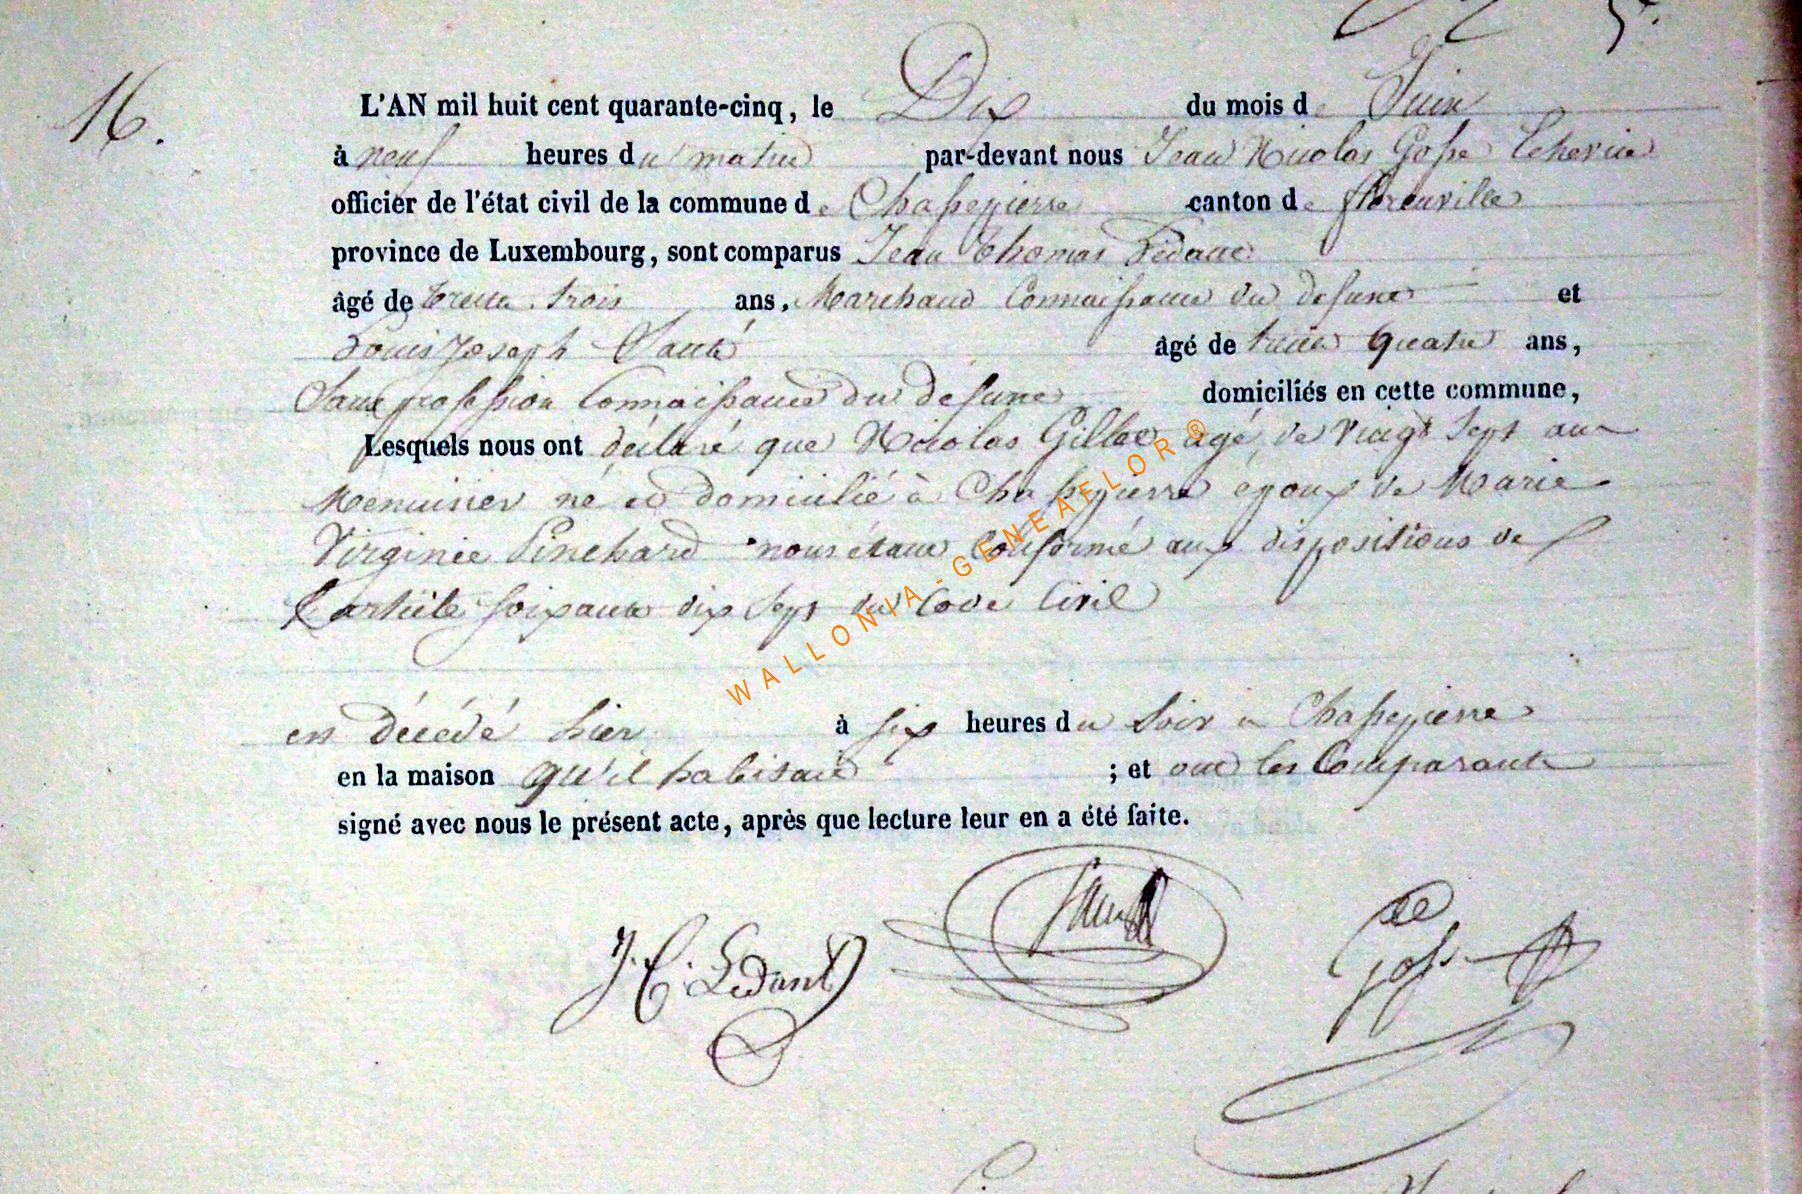 16.
L'AN mil huit cent quarante-cinq, le Dix du mois de Juin
à neuf heures du matin par-devant nous Jean Nicolas Gosse Echevin
officier de l'état civil de la commune de Chassepierre canton de florenville
province de Luxembourg, sont comparus Jean Thomas Lédant
âgé de trente trois ans, Marchand Connaissance du defunt et
Louis Joseph âgé de trente quatre ans,
Sans profession Connaissance du defunt domiciliés en cette commune,
Lesquels nous ont déclaré que Nicolas Gillet agé de vingt sept ans
Menuisier né et domicilié à Chassepierre époux de Marie
Virginie Pinchard nous étant conformé aux dispositions de
l'article soixante dix sept du Code Civil
est décédé hier à six heures du soir à Chassepierre
en la maison qu'il habitait ; et ont les Comparants
signé avec nous le présent acte, après que lecture leur en a été faite.
J. T. Ledant
Gosse
WALLONIA-GENEAFLOR®